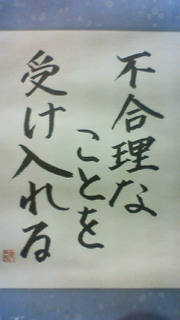 不合理な
ことを
受け入れる